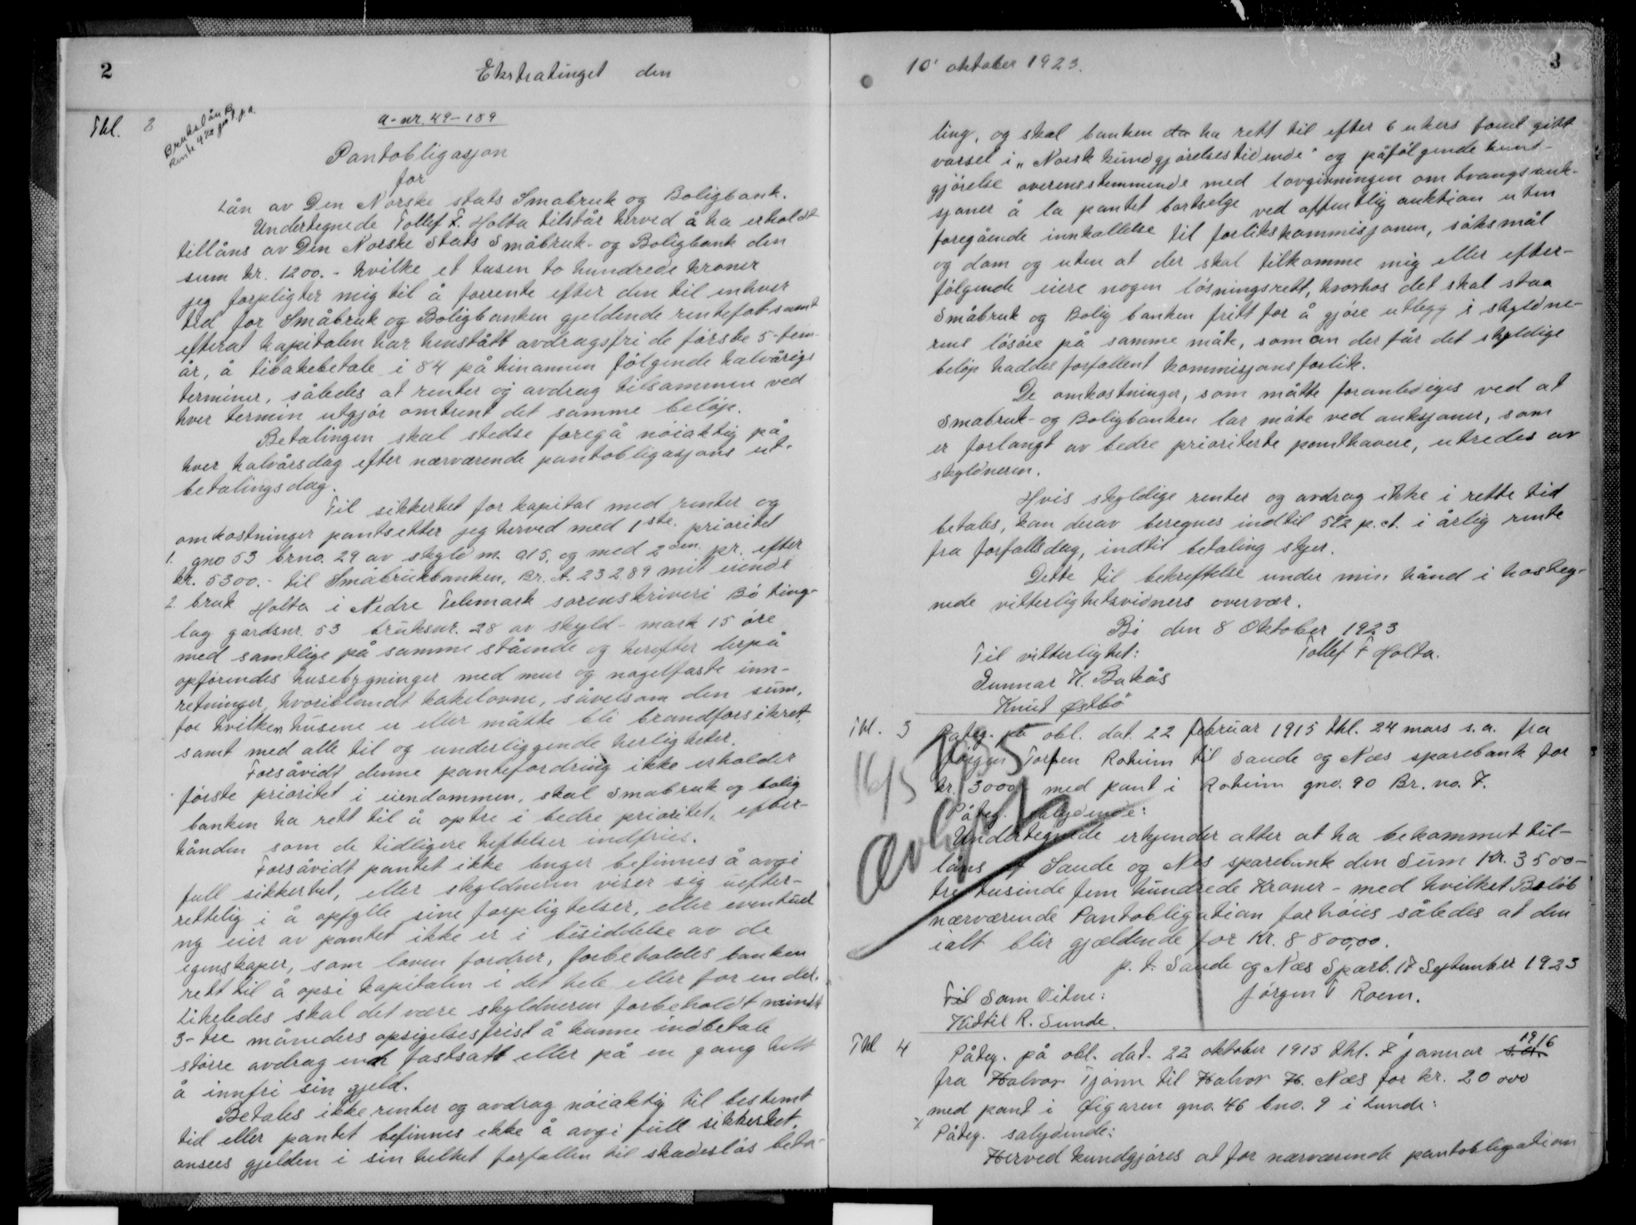 2
Ekstratinget den
Tkl. 2
Brukslån B
Rente 4½ på p.a.
a-nr. 49-189
Pantobligasjon
for
Lån av Den Norske stats Småbruk og Boligbank.
Undertegnede Tollef F. Holta tilstår herved å ha erholdt
tillåns av Den Norske Stats Småbruk- og Boligbank den
sum kr. 1200.- hvilke et tusen to hundrede kroner
jeg forpligter mig til å forrente efter den til enhver
tid for Småbruk og Boligbanken gjeldende rentefot samt
efterat kapitalen har henstått avdragsfri de første 5-fem
år, å tilbakebetale i 84 på hinannen følgende halvårige
terminer, således at renter og avdrag tilsammen ved
hver termin utgjør omtrent det samme beløp.
Betalingen skal stedse foregå nøiaktig på
hver halvårsdag efter nærværende pantobligasjons ut-
betalingsdag.
Til sikkerhet for kapital med renter og
omkostninger pantsetter jeg herved med 1ste prioritet
1. gno 53 brno. 29 av skyld m. 0.15, og med 2den pr. efter
kr. 5300.- til Småbrukbanken, Br. A. 23289 mit eiende
2 bruk Holta i Nedre Telemark sorenskriveri Bø ting-
lag gardsnr. 53 bruksnr. 28 av skyld - mark 15 øre
med samtlige på samme stående og herefter derpå
opførendes husebygninger med mur og nagelfaste inn-
retninger, hvoriblandt kakelovne, såvelsom den sum,
for hvilken husene er eller måtte bli brandforsikret,
samt med alle til og underliggende herligheter.
Forsåvidt denne pantefordring ikke erholder
første prioritet i eiendommen, skal Småbruk og bolig
banken ha rett til å optre i bedre prioritet, efter-
hånden som de tidligere heftelser indfries.
Forsåvidt pantet ikke lenger befinnes å avgi
full sikkerhet, eller skyldneren viser sig uefter-
rettelig i å opfylle sine forpligtelser, eller eventuel
ny eier av pantet ikke er i besiddelse av de
egenskaper, som loven fordrer, forbeholdes banken
rett til å opsi kapitalen i det hele eller for en del.
Likeledes skal det være skyldneren forbeholdt mindst
3-tre måneders opsigelsesfrist å kunne indbetale
større avdrag enn fastsatt eller på en gang helt
å innfri sin gjeld.
Betales ikke renter og avdrag nøiaktig til bestemt
tid eller pantet befinnes ikke å avgi full sikkerhet,
ansees gjelden i sin helhet forfallen til skadesløs beta-
10' oktober 1923.
3
ling, og skal banken da ha rett til efter 6 ukers forut gitt
varsel i "Norsk kundgjørelsestidende" og påfølgende kund-
gjørelse overensstemmende med lovgivningen om tvangsauk-
sjoner å la pantet bortselge ved offentlig auktion uten
foregående innkallelse til forlikskommisjonen, søksmål
og dom og uten at der skal tilkomme mig eller efter-
følgende eiere nogen løsningsrett, hvorhos det skal staa
Småbruk og Bolig banken fritt for å gjøre utlegg i skyldne-
rens løsøre på samme måte, som om der får det skyldige
beløp haddes forfallent kommisjonsforlik.
De omkostninger, som måtte foranlediges ved at
Småbruk- og Boligbanken lar møte ved auksjoner, som
er forlangt av bedre prioriterte panthavere, utredes av
skyldneren.
Hvis skyldige renter og avdrag ikke i rette tid
betales, kan derav beregnes indtil 5½ p.ct. i årlig rente
fra forfallsdag, indtil betaling skjer.
Dette til bekreftelse under min hånd i hosteg-
nede vitterlighetsvidners overvær.
Bø den 8 Oktober 1923
Til vitterlighet: Tollef F Holta.
Gunnar H. Bakås
Knut Østbø
Tkl. 3 Påteg. på obl. dat. 22 februar 1915 thl. 24 mars s.a. fra
Jørgen Torsen Roheim til Saude og Nes sparebank for
kr. 3000 med pant i Roheim gno. 90 Br. no. 7.
Påteg. salydende:
Undertegnede erkjender atter at ha bekommet til-
låns af Saude og Nes sparebank den Sum Kr. 3500-
tre tusinde fem hundrede Kroner - med hvilket Beløb
nærværende Pantobligation forhøies således at den
ialt blir gjældende for Kr. 8800,00.
p.t. Saude og Næs Sparb. 17 September 1923
Til Som Vitne: Jørgen T Roem.
Kittil R. Sunde.
16/5 1935
Avlyst
Tkl 4 Påteg. på obl. dat. 22 oktober 1915 thl. 7 januar s.a. 1916
fra Halvor Tjønn til Halvor H. Næs for kr. 20000
med pant i Øigaren gno. 46 bno. 9 i Lunde:
Påteg. salydende:
Herved kundgjøres at for nærværende pantobligation